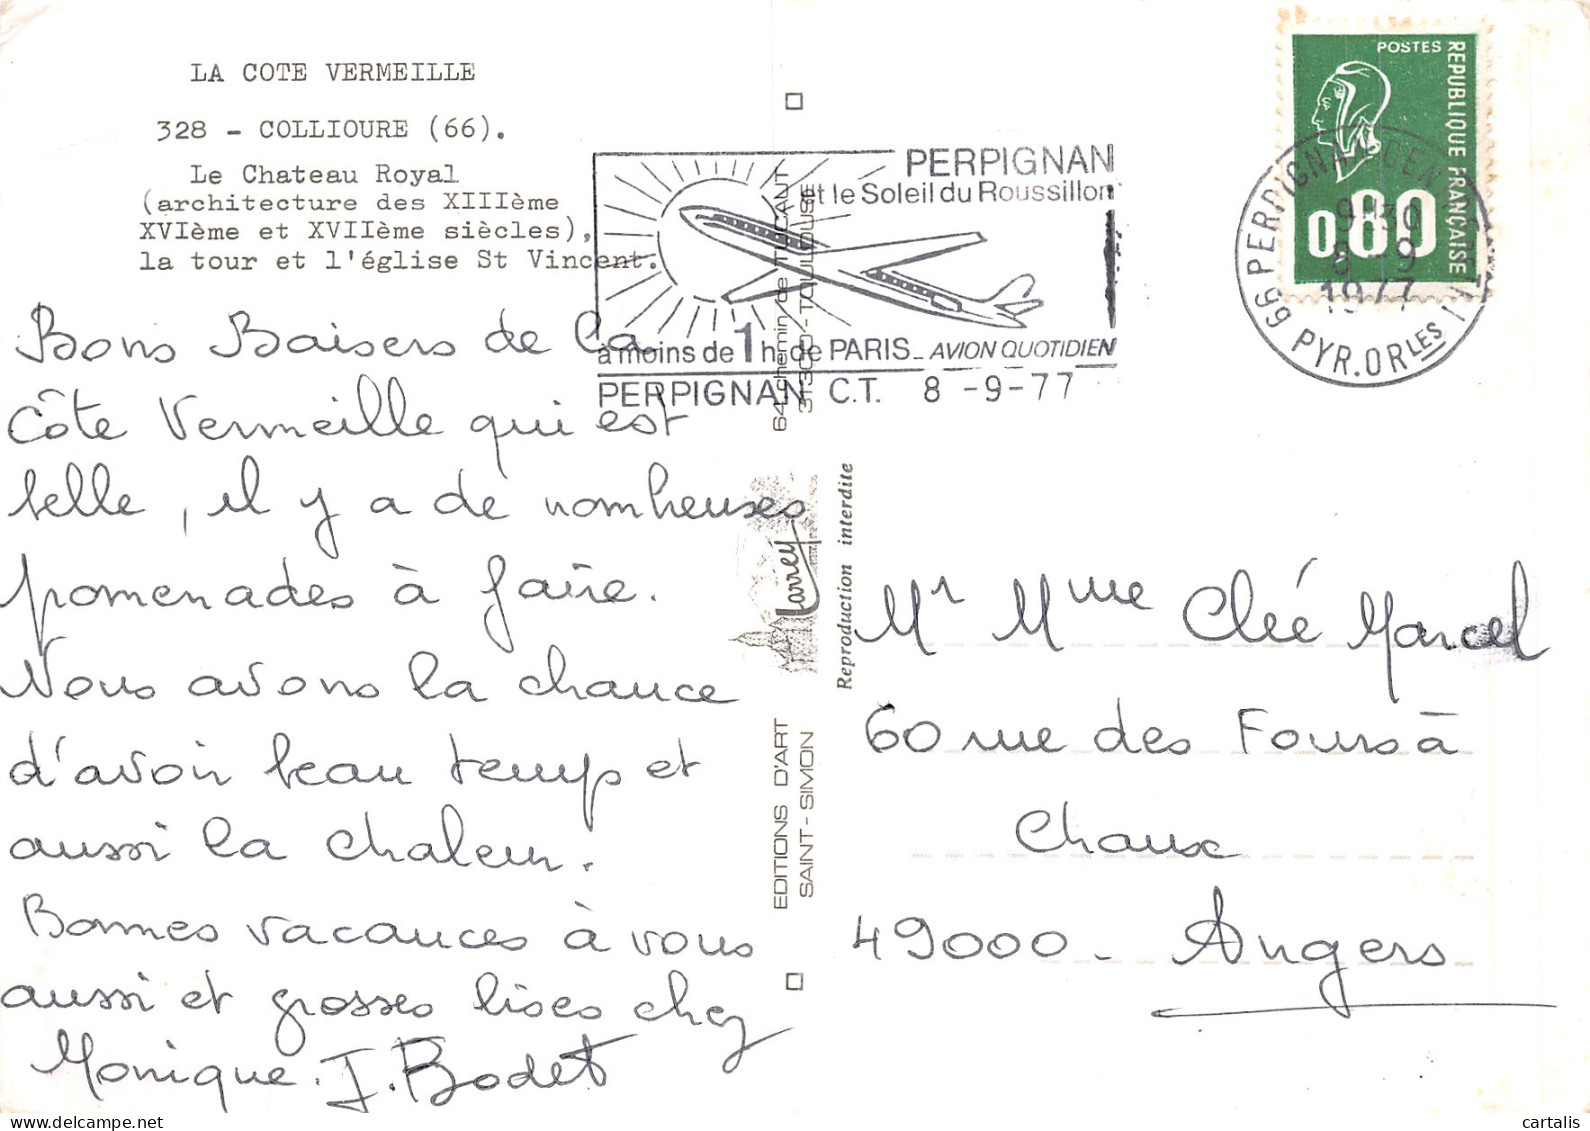 LA COTE VERMEILLE
328 - COLLIOURE (66).
Le Chateau Royal
(architecture des XIIIème
XVIème et XVIIème siècles),
la tour et l'église St Vincent.
Bons Baisers de la
Côte Vermeille qui est
belle, il y a de nombeuses
promenades à faire.
Nous avons la chance
d'avoir beau temps et
aussi la chaleur.
Bonnes vacances à vous
aussi et grosses bises chez
Monique. J. Bodet
PERPIGNAN
et le Soleil du Roussillon
à moins de 1h de PARIS - AVION QUOTIDIEN
PERPIGNAN C.T. 8 -9-77
64, chemin de TUCAUT
31300 - TOULOUSE
Larrey
Reproduction interdite
EDITIONS D'ART
SAINT-SIMON
POSTES
REPUBLIQUE FRANÇAISE
0,80
66 PERPIGNAN CENTRE
9H30
8 -9
1977
PYR. ORLES
Mr Mme Cleé Marcel
60 rue des Fours à
Chaux
49000 - Angers
delcampe.net
cartalis